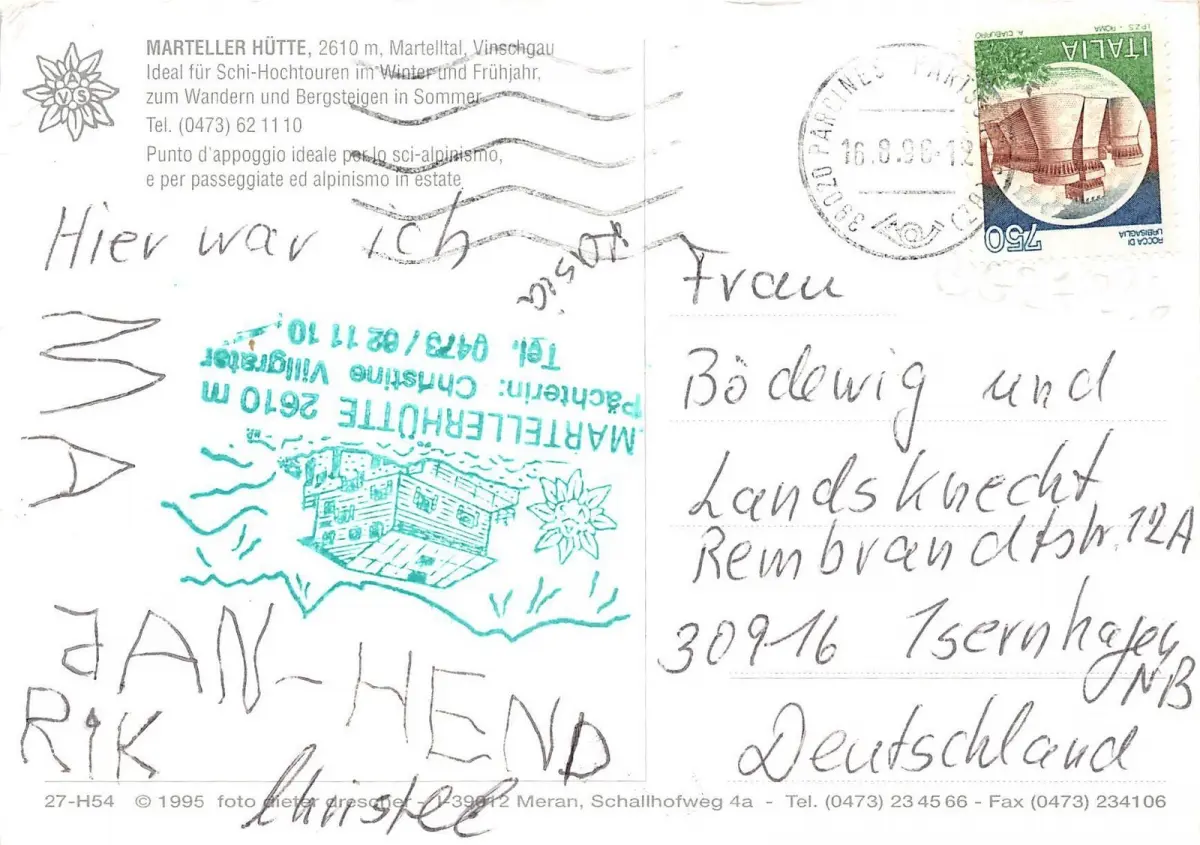 MARTELLER HÜTTE, 2610 m, Martelltal, Vinschgau
Ideal für Schi-Hochtouren im Winter und Frühjahr,
zum Wandern und Bergsteigen in Sommer
Tel. (0473) 62 11 10
Punto d'appoggio ideale per lo sci-alpinismo,
e per passeggiate ed alpinismo in estate
AVS
Hier war ich
JAN-HEND
RIK
Christel
MARTELLERHÜTTE 2610 m
Pächterin: Christine Villgrater
Tel. 0473 / 62 11 10
39020 PARCINES PARTS
16.8.96-12
ITALIA
750
ROCCA DI
URBISAGLIA
I.P.Z.S. - ROMA
Frau
Bödewig und
Landsknecht
Rembrandtstr. 12A
30916 Isernhagen
NB
Deutschland
27-H54 © 1995 foto dieter drescher - I-39012 Meran, Schallhofweg 4a - Tel. (0473) 23 45 66 - Fax (0473) 234106